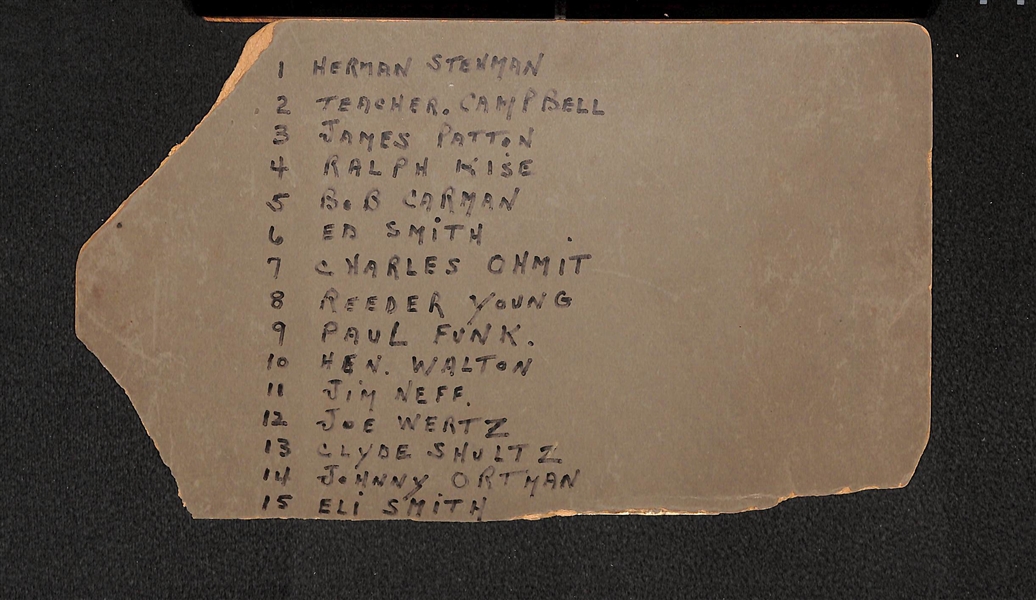 1 HERMAN STEHMAN
2 TEACHER. CAMPBELL
3 JAMES PATTON
4 RALPH KISE
5 BOB CARMAN
6 ED SMiTH
7 CHARLES OHMIT
8 REEDER YOUNG
9 PAUL FUNK.
10 HEN. WALTON
11 JiM NEFF.
12 JOE WERTZ
13 CLYDE SHULTZ
14 JOHNNY ORTMAN
15 ELi SMiTH